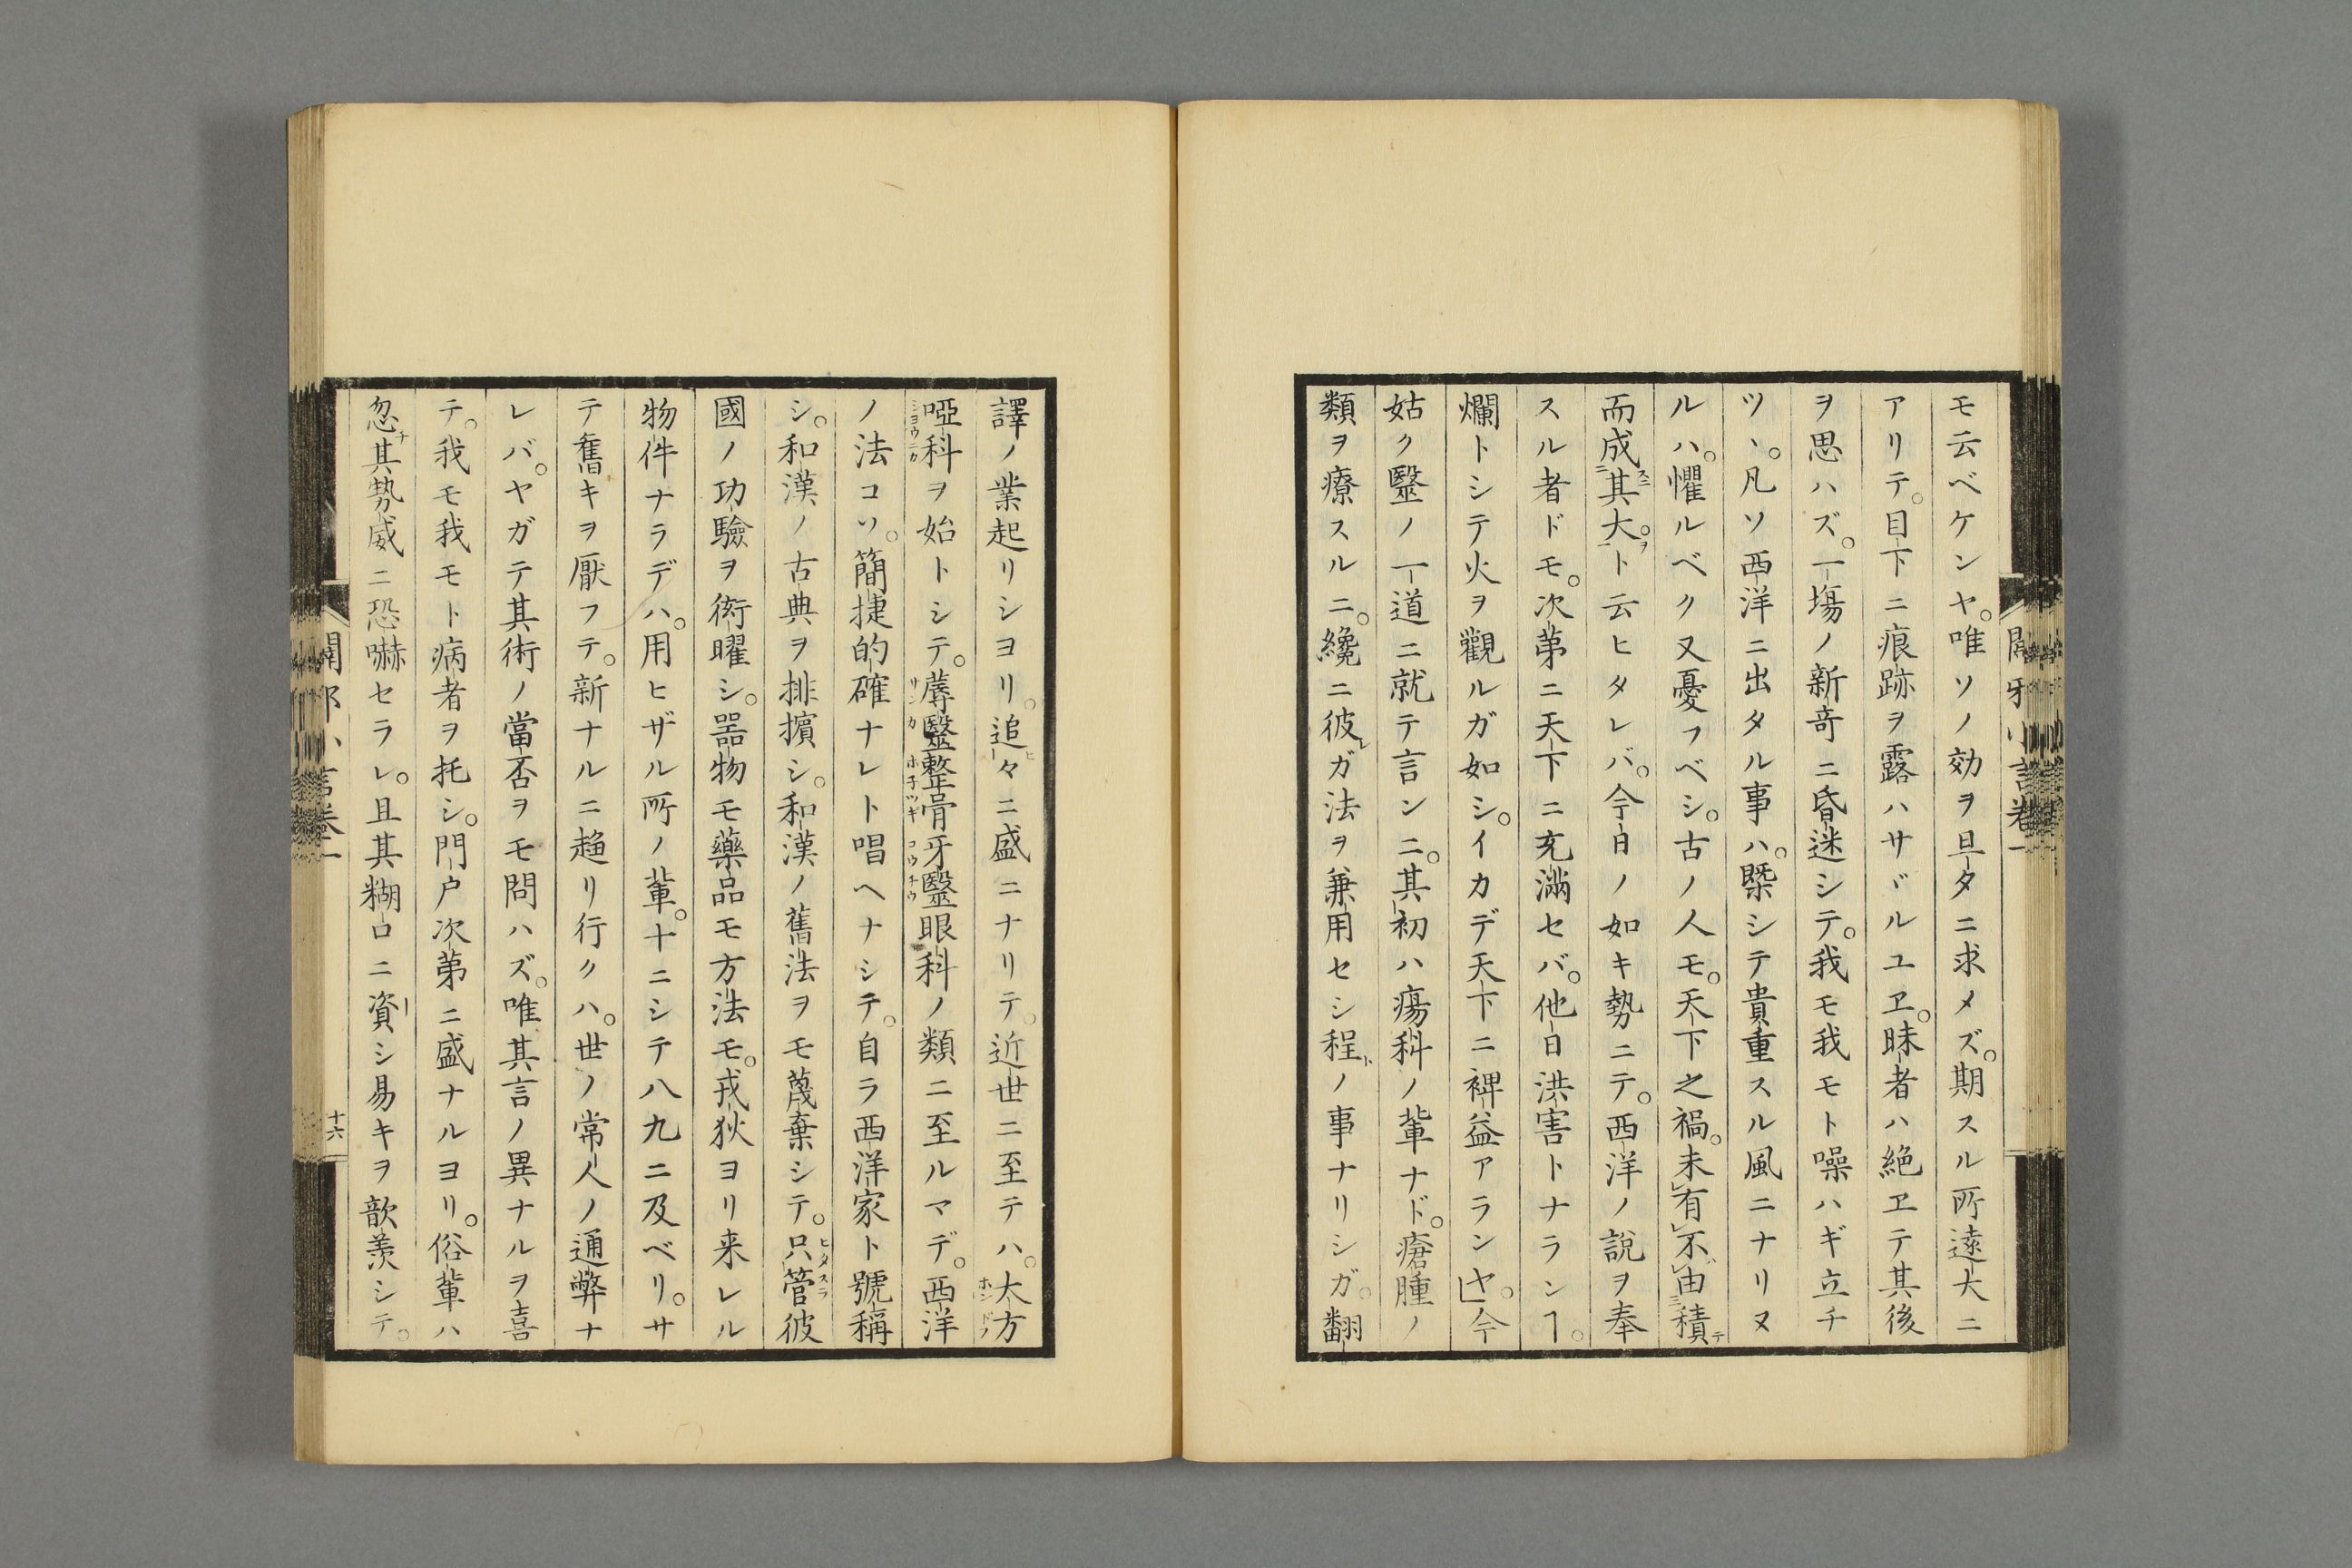 モ云ベケンヤ。唯ソノ効ヲ旦タニ求メズ。期スル所遠大ニ
アリテ。目下ニ痕跡ヲ露ハサヾルユヱ。昧者ハ絶ヱテ其後
ヲ思ハズ。一塲ノ新竒ニ昏迷シテ。我モ我モト噪ハギ立チ
ツヽ。凡ソ西洋ニ出タル事ハ。槩シテ貴重スル風ニナリヌ
ルハ。懼ルベク又憂フベシ。古ノ人モ。天下之禍。未有不由積
而成其大。ト云ヒタレバ。今日ノ如キ勢ニテ。西洋ノ說ヲ奉
スル者ドモ。次苐ニ天下ニ充滿セバ。他日洪害トナランヿ。
爛トシテ火ヲ觀ルガ如シ。イカデ天下ニ裨益アランヤ。今
姑ク毉ノ一道ニ就テ言ンニ。其初ハ瘍科ノ軰ナド。瘡腫ノ
類ヲ療スルニ。纔ニ彼レガ法ヲ兼用セシ程ノ事ナリシガ。翻
譯ノ業起リシヨリ。追々ニ盛ニナリテ。近世ニ至テハ。太方
啞科ヲ始トシテ。蓐毉整骨牙毉眼科ノ類ニ至ルマデ。西洋
ノ法コソ。簡捷的確ナレト唱ヘナシテ。自ラ西洋家ト號稱
シ。和漢ノ古典ヲ排擯シ。和漢ノ舊法ヲモ蔑棄シテ。只管彼
國ノ功驗ヲ衒曜シ。噐物モ藥品モ方法モ。戎狄ヨリ来レル
物件ナラデハ。用ヒザル所ノ軰。十ニシテ八九ニ及ベリ。サ
テ舊キヲ厭フテ。新ナルニ趨リ行クハ。世ノ常人ノ通弊ナ
レバ。ヤガテ其術ノ當否ヲモ問ハズ。唯其言ノ異ナルヲ喜
テ。我モ我モト病者ヲ托シ。門戸次苐ニ盛ナルヨリ。俗軰ハ
忽チ其勢威ニ恐嚇セラレ。且其糊口ニ資シ易キヲ歆羨シテ。
十六